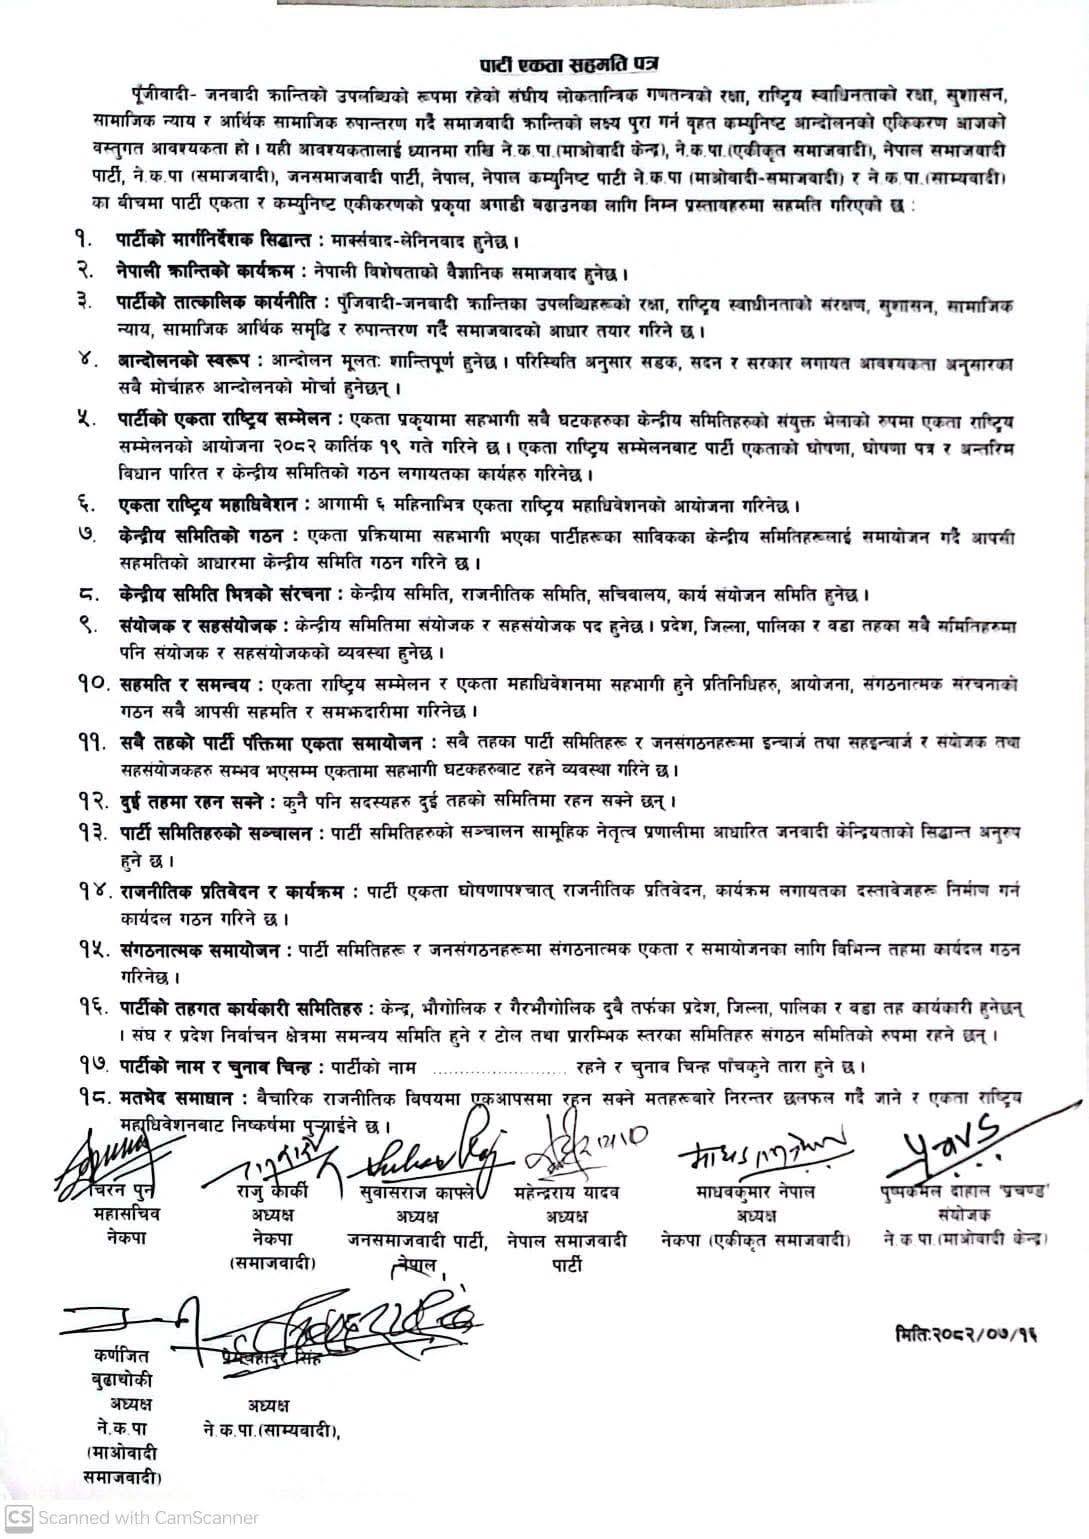 पार्टी एकता सहमति पत्र
पूँजीवादी- जनवादी क्रान्तिको उपलब्धिको रूपमा रहेको संघीय लोकतान्त्रिक गणतन्त्रको रक्षा, राष्ट्रिय स्वाधिनताको रक्षा, सुशासन,
सामाजिक न्याय र आर्थिक सामाजिक रुपान्तरण गर्दै समाजवादी क्रान्तिको लक्ष्य पुरा गर्न वृहत कम्युनिष्ट आन्दोलनको एकिकरण आजको
वस्तुगत आवश्यकता हो । यही आवश्यकतालाई ध्यानमा राखि ने.क.पा.(माओवादी केन्द्र), ने.क.पा.(एकीकृत समाजवादी), नेपाल समाजवादी
पार्टी, ने.क.पा (समाजवादी), जनसमाजवादी पार्टी, नेपाल, नेपाल कम्युनिष्ट पार्टी ने.क.पा (माओवादी-समाजवादी) र ने.क.पा.(साम्यवादी)
का बीचमा पार्टी एकता र कम्युनिष्ट एकीकरणको प्रकृया अगाडी बढाउनका लागि निम्न प्रस्तावहरुमा सहमति गरिएको छ :
१. पार्टीको मार्गनिर्देशक सिद्धान्त : मार्क्सवाद-लेनिनवाद हुनेछ ।
२. नेपाली क्रान्तिको कार्यक्रम : नेपाली विशेषताको वैज्ञानिक समाजवाद हुनेछ ।
३. पार्टीको तात्कालिक कार्यनीति : पुँजिवादी-जनवादी क्रान्तिका उपलब्धिहरुको रक्षा, राष्ट्रिय स्वाधीनताको संरक्षण, सुशासन, सामाजिक
न्याय, सामाजिक आर्थिक समृद्धि र रुपान्तरण गर्दै समाजवादको आधार तयार गरिने छ ।
४. आन्दोलनको स्वरूप : आन्दोलन मूलतः शान्तिपूर्ण हुनेछ । परिस्थिति अनुसार सडक, सदन र सरकार लगायत आवश्यकता अनुसारका
सबै मोर्चाहरु आन्दोलनको मोर्चा हुनेछन् ।
५. पार्टीको एकता राष्ट्रिय सम्मेलन : एकता प्रकृयामा सहभागी सबै घटकहरुका केन्द्रीय समितिहरुको संयुक्त भेलाको रुपमा एकता राष्ट्रिय
सम्मेलनको आयोजना २०८२ कार्तिक १९ गते गरिने छ । एकता राष्ट्रिय सम्मेलनबाट पार्टी एकताको घोषणा, घोषणा पत्र र अन्तरिम
विधान पारित र केन्द्रीय समितिको गठन लगायतका कार्यहरु गरिनेछ ।
६. एकता राष्ट्रिय महाधिवेशन : आगामी ६ महिनाभित्र एकता राष्ट्रिय महाधिवेशनको आयोजना गरिनेछ ।
७. केन्द्रीय समितिको गठन : एकता प्रक्रियामा सहभागी भएका पार्टीहरूका साविकका केन्द्रीय समितिहरूलाई समायोजन गर्दै आपसी
सहमतिको आधारमा केन्द्रीय समिति गठन गरिने छ ।
८. केन्द्रीय समिति भित्रको संरचना : केन्द्रीय समिति, राजनीतिक समिति, सचिवालय, कार्य संयोजन समिति हुनेछ ।
९. संयोजक र सहसंयोजक : केन्द्रीय समितिमा संयोजक र सहसंयोजक पद हुनेछ । प्रदेश, जिल्ला, पालिका र वडा तहका सबै समितिहरुमा
पनि संयोजक र सहसंयोजकको व्यवस्था हुनेछ ।
१०. सहमति र समन्वय : एकता राष्ट्रिय सम्मेलन र एकता महाधिवेशनमा सहभागी हुने प्रतिनिधिहरु, आयोजना, संगठनात्मक संरचनाको
गठन सबै आपसी सहमति र समझदारीमा गरिनेछ ।
११. सबै तहको पार्टी पंक्तिमा एकता समायोजन : सबै तहका पार्टी समितिहरू र जनसंगठनहरूमा इन्चार्ज तथा सहइन्चार्ज र संयोजक तथा
सहसंयोजकहरु सम्भव भएसम्म एकतामा सहभागी घटकहरुबाट रहने व्यवस्था गरिने छ ।
१२. दुई तहमा रहन सक्ने : कुनै पनि सदस्यहरु दुई तहको समितिमा रहन सक्ने छन् ।
१३. पार्टी समितिहरुको सञ्चालन : पार्टी समितिहरुको सञ्चालन सामूहिक नेतृत्व प्रणालीमा आधारित जनवादी केन्द्रियताको सिद्धान्त अनुरुप
हुने छ ।
१४. राजनीतिक प्रतिवेदन र कार्यक्रम : पार्टी एकता घोषणापश्चात् राजनीतिक प्रतिवेदन, कार्यक्रम लगायतका दस्तावेजहरू निर्माण गर्न
कार्यदल गठन गरिने छ ।
१५. संगठनात्मक समायोजन : पार्टी समितिहरू र जनसंगठनहरूमा संगठनात्मक एकता र समायोजनका लागि विभिन्न तहमा कार्यदल गठन
गरिनेछ ।
१६. पार्टीको तहगत कार्यकारी समितिहरु : केन्द्र, भौगोलिक र गैरभौगोलिक दुबै तर्फका प्रदेश, जिल्ला, पालिका र वडा तह कार्यकारी हुनेछन्
। संघ र प्रदेश निर्वाचन क्षेत्रमा समन्वय समिति हुने र टोल तथा प्रारम्भिक स्तरका समितिहरु संगठन समितिको रुपमा रहने छन् ।
१७. पार्टीको नाम र चुनाव चिन्ह : पार्टीको नाम ........................ रहने र चुनाव चिन्ह पाँचकुने तारा हुने छ ।
१८. मतभेद समाधान : वैचारिक राजनीतिक विषयमा एकआपसमा रहन सक्ने मतहरूबारे निरन्तर छलफल गर्दै जाने र एकता राष्ट्रिय
महाधिवेशनबाट निष्कर्षमा पुऱ्याईने छ ।
चिरन पुन राजु कार्की सुवासराज काफ्ले महेन्द्रराय यादव माधवकुमार नेपाल पुष्पकमल दाहाल 'प्रचण्ड'
महासचिव अध्यक्ष अध्यक्ष अध्यक्ष अध्यक्ष संयोजक
नेकपा नेकपा जनसमाजवादी पार्टी, नेपाल समाजवादी नेकपा (एकीकृत समाजवादी) ने.क.पा.(माओवादी केन्द्र)
(समाजवादी) नेपाल, पार्टी
मिति:२०८२/०७/१६
कर्णजित प्रेमबहादुर सिंह
बुढाथोकी
अध्यक्ष अध्यक्ष
ने.क.पा ने.क.पा.(साम्यवादी),
(माओवादी
समाजवादी)
CS Scanned with CamScanner